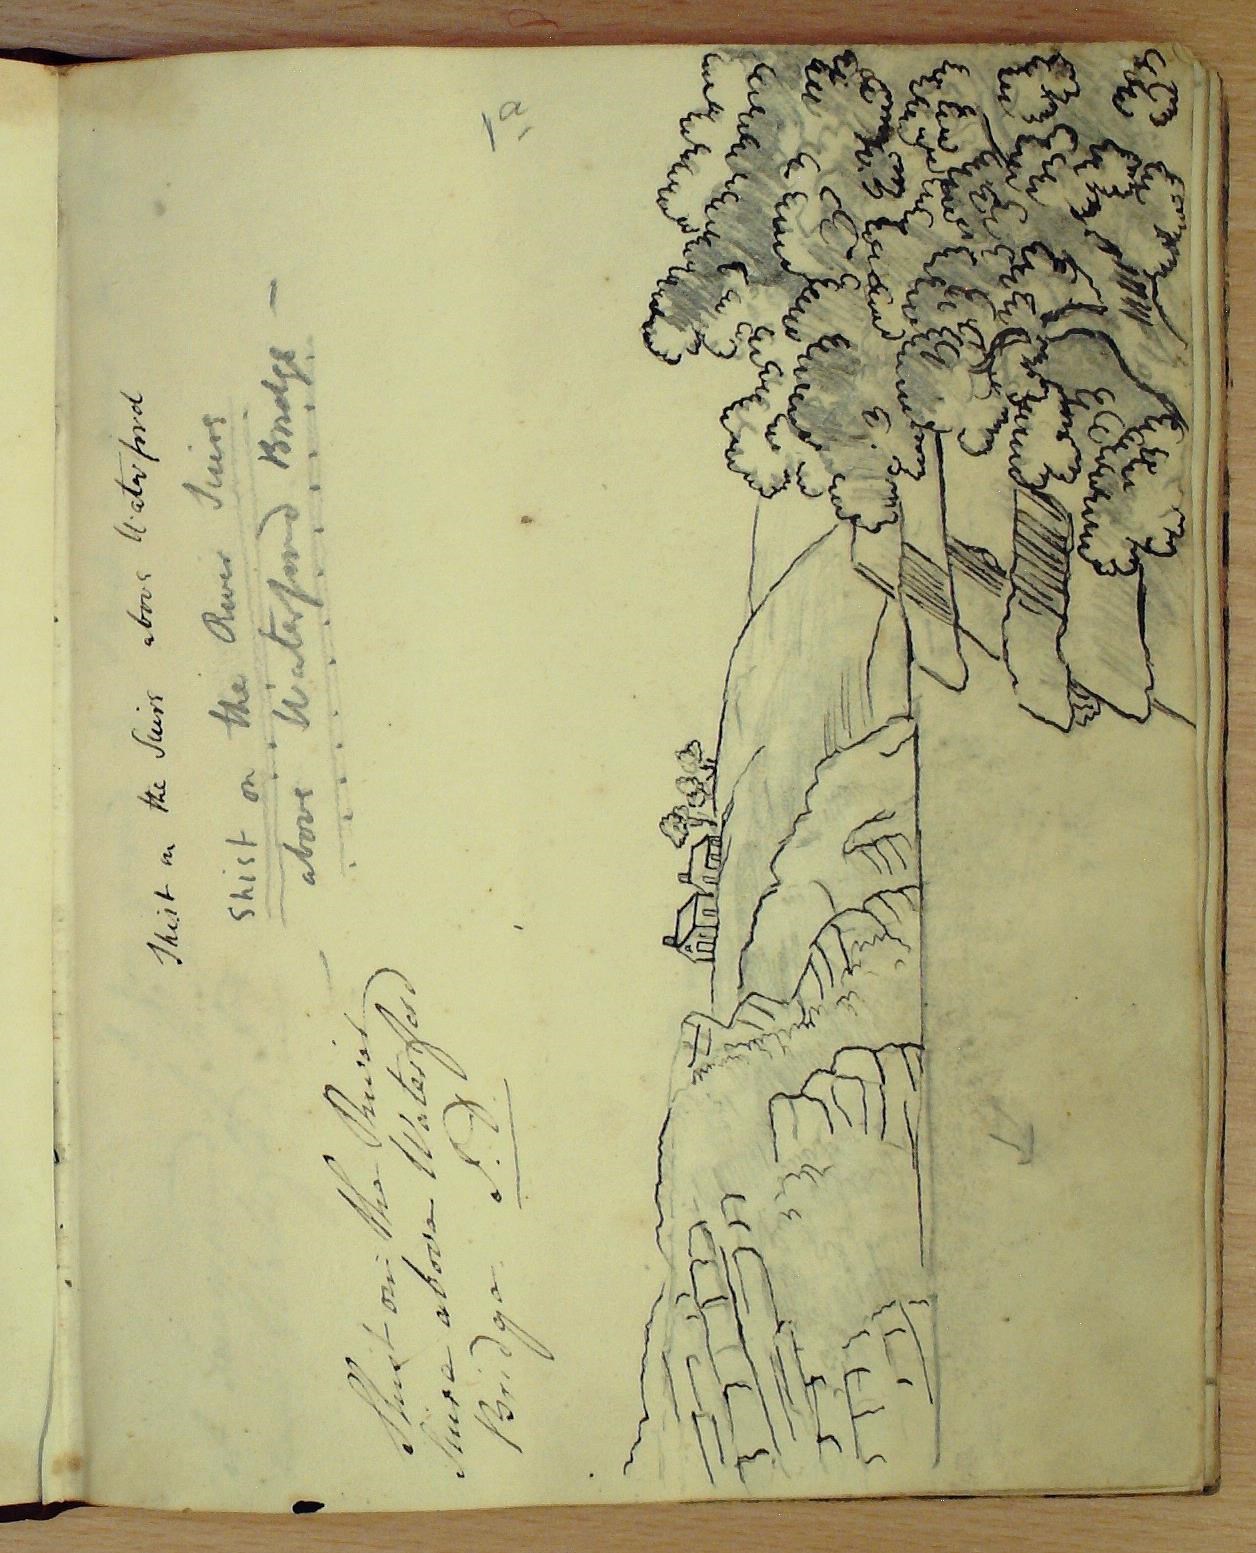 Shist on the Suire above Waterford
Shist on the River Suire
above Waterford Bridge —
Shist on the River
Suire above Waterford
Bridge S. D.
1a